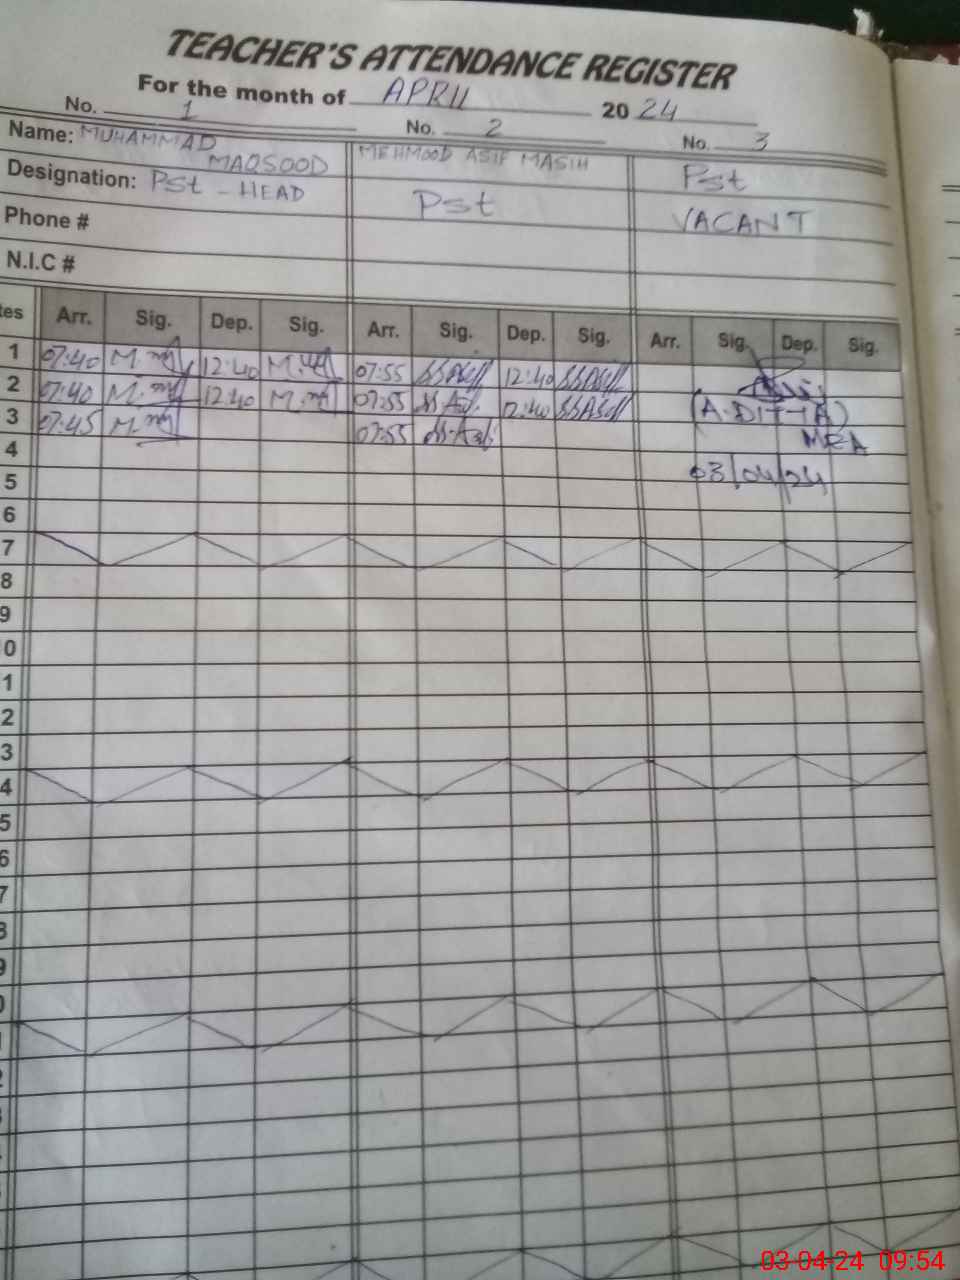 TEACHER'S ATTENDANCE REGISTER
For the month of APRIL 2024
No. 1 No. 2 No. 3
Name: MUHAMMAD MAQSOOD MEHMOOD ASIF MASIH Pst
Designation: Pst - HEAD Pst VACANT
Phone #
N.I.C #
tes Arr. Sig. Dep. Sig. Arr. Sig. Dep. Sig. Arr. Sig. Dep. Sig.
1 07:40 12:40 07:55 12:40
2 07:40 12:40 07:55 12:40
3 07:45 07:55
MEA
4
5 03/04/24
6
7
8
9
0
1
2
3
4
5
6
7
8
9
0
1
2
03-04-24 09:54